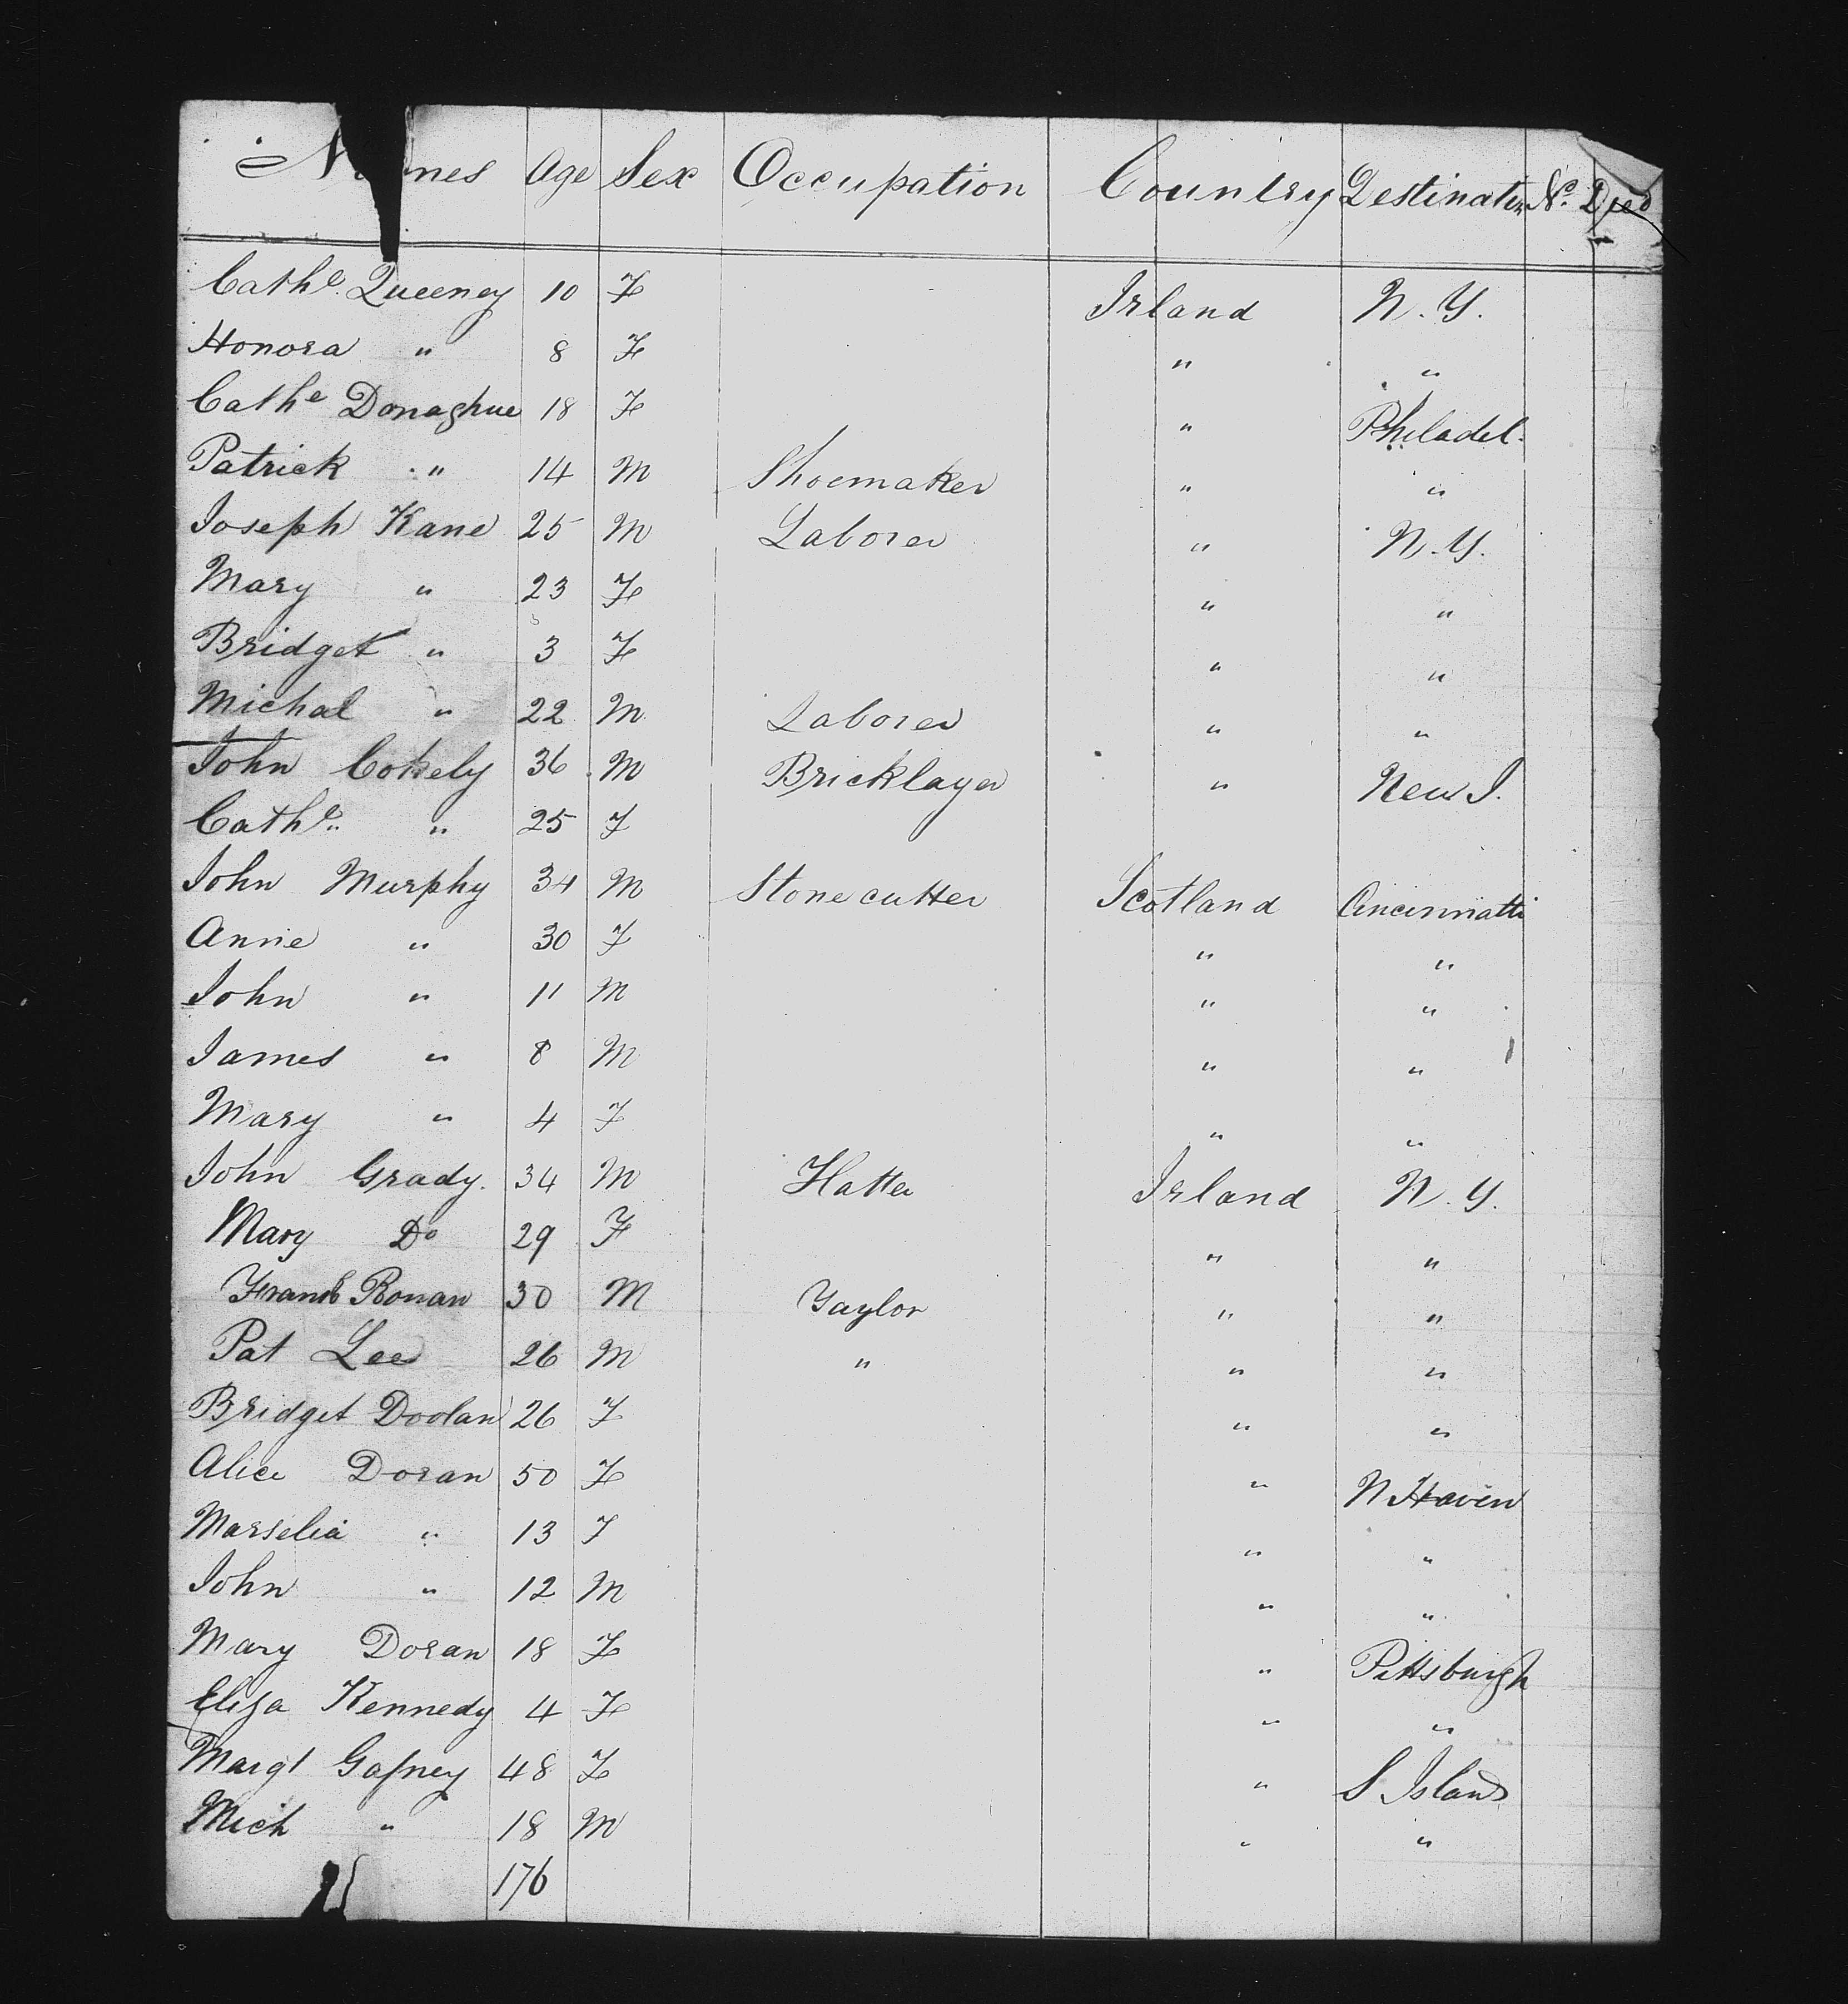 Names Age Sex Occupation Country Destinatn No. Died
Cathe. Queeney 10 F Irland N. Y.
Honora " 8 F " "
Cathe Donaghue 18 F " Philadel.
Patrick " 14 M Shoemaker " "
Joseph Kane 25 M Laborer " N. Y.
Mary " 23 F " "
Bridget " 3 F " "
Michal " 22 M Laborer " "
John Cokely 36 M Bricklayer " New J.
Cathe. " 25 F
John Murphy 34 M Stonecutter Scotland Cincinnatti
Anne " 30 F " "
John " 11 M " "
James " 8 M " "
Mary " 4 F " "
John Grady. 34 M Hatter Irland N. Y.
Mary Do 29 F " "
Frank Ronan 30 M Taylor " "
Pat Lee 26 M " " "
Bridget Doolan 26 F " "
Alice Doran 50 F " N Haven
Marselia " 13 F " "
John " 12 M " "
Mary Doran 18 F " Pittsburgh
Eliza Kennedy 4 F " "
Margt Gafney 48 F " S Island
Mich " 18 M " "
176